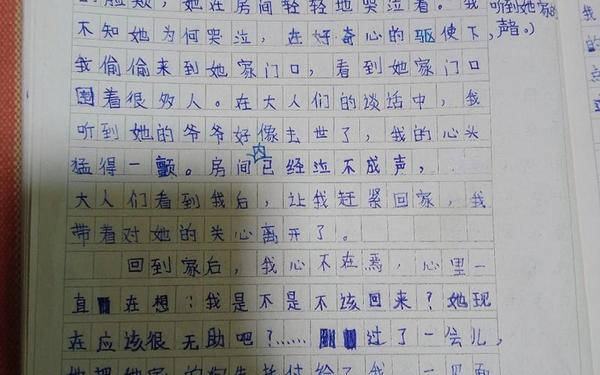 的脸颊，她在房间轻轻地哭泣着。我听到她家的声音。)
不知她为何哭泣，在好奇心的驱使下，
我偷偷来到她家门口，看到她家门口
围着很多人。在大人们的谈话中，我
听到她的爷爷好像去世了，我的心头
猛得一颤。房间内已经泣不成声，
大人们看到我后，让我赶紧回家，我
带着对她的关心离开了。
回到家后，我心不在焉，心里一
直在想：我是不是不该回来？她现
在应该很无助吧？……过了一会儿，
她把她家的托付给了我，一见面